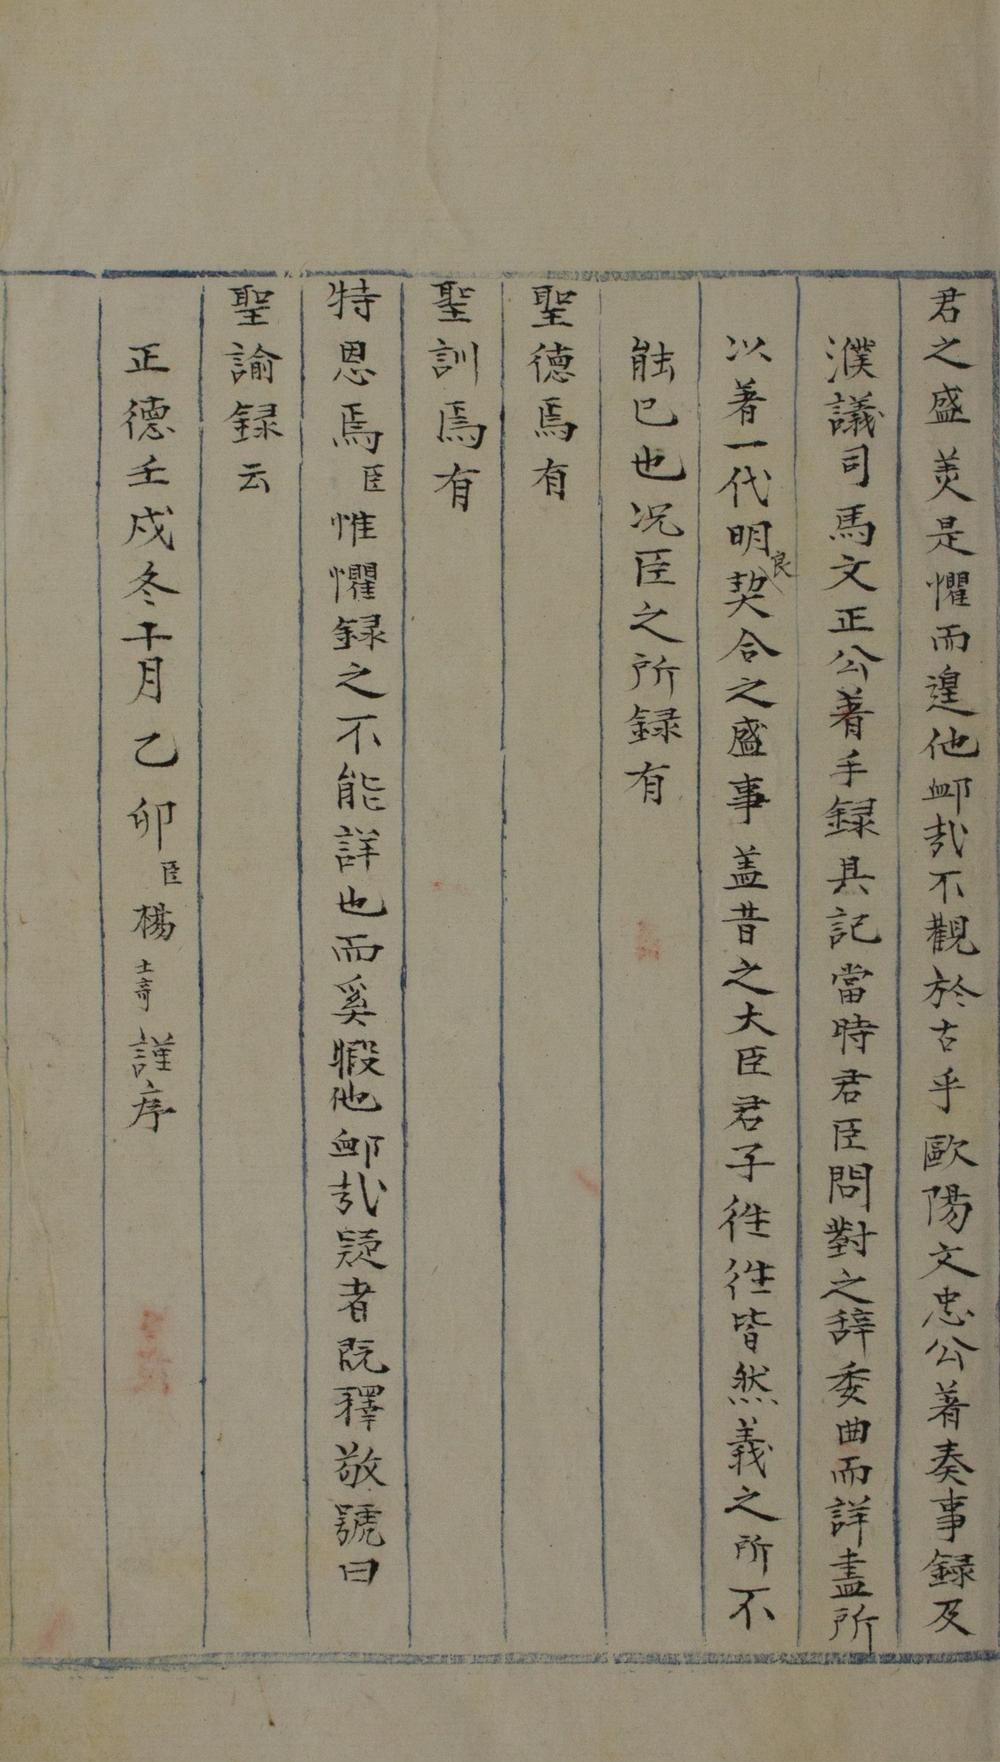 君之盛羙是懼而遑他䘏㢤不觀於古乎歐陽文忠公著奏事録及
濮議司馬文正公著手録具記當時君臣問對之辞委曲而詳盡所
以著一代明良契合之盛事盖昔之大臣君子徃徃皆然義之所不
能已也况臣之所録有
聖德焉有
聖訓焉有
特恩焉臣惟懼録之不能詳也而奚暇他䘏㢤疑者既釋敬號曰
聖諭録云
正德壬戍冬十月乙卯臣楊士竒謹序